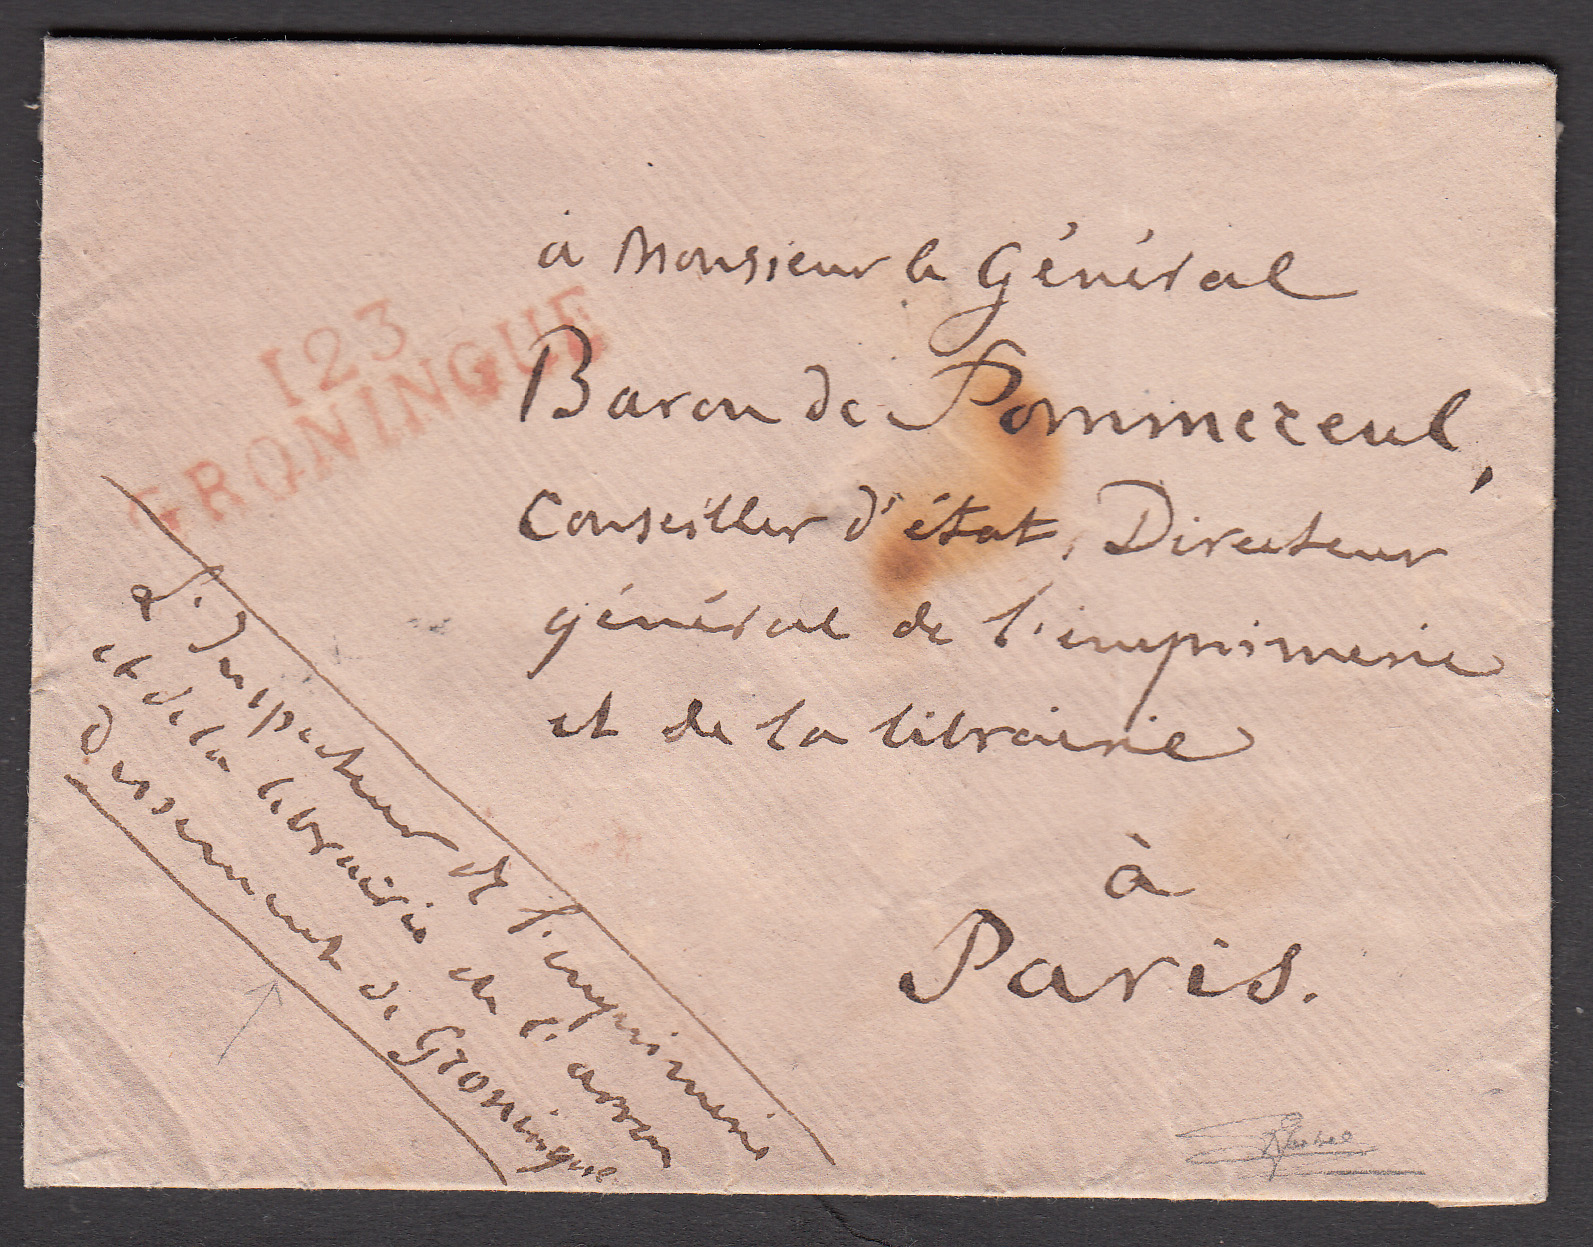 123
GRONINGUE
à Monsieur le Général
Baron de Pommereul,
Conseiller d'état, Directeur
général de l'imprimerie
et de la librairie
à
Paris.
L'Inspecteur de l'imprimerie
et de la librairie de l'arron
dissement de Groningue